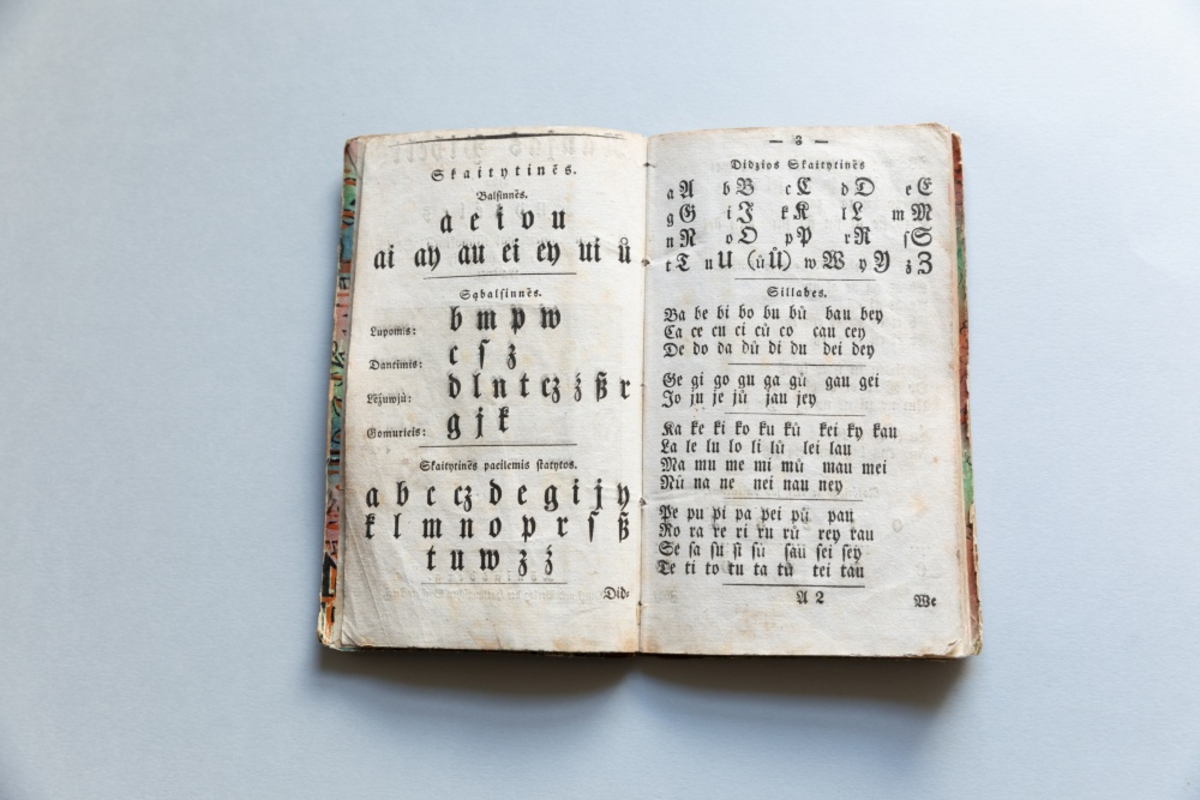 Skaitytinēs.
Balſinnēs.
a e i o u
ai ay au ei ey ui ů
Sąbalſinnēs.
Lupomis: b m p w
Dantimis: c ſ ż
Lēżuwjù: d l n t cz ź ß r
Gomurieis: g j k
Skaitytinēs paeilemis ſtatytos.
a b c cz d e g i j y
k l m n o p r ſ ß
t u w z ż
Did-
— 3 —
Didzios Skaitytinēs
a A b B c C d D e E
g G i J k K l L m M
n N o O p P r R ſ S
t T u U (ů Ů) w W y Y ż Z
Sillabes.
Ba be bi bo bu bů bau bey
Ca ce cu ci ců co cau cey
De do da dů di du dei dey
Ge gi go gu ga gů gau gei
Jo ju je jů jau jey
Ka ke ki ko ku ků kei ky kau
La le lu lo li lů lei lau
Ma mu me mi mů mau mei
Nů na ne nei nau ney
Pe pu pi pa pei pů pau
Ro ra re ri ru rů rey rau
Se ſa ſu ſi ſů ſau ſei ſey
Te ti to tu ta tů tei tau
A 2
We